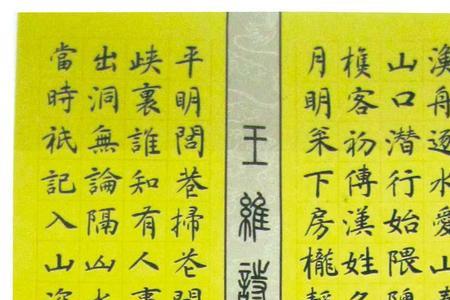 漁舟逐水愛山
山口潜行始隈
樵客初傳漢姓名
月明枀下房櫳靜
王維詩
平明閭巷掃花開
峡裏誰知有人事
出洞無論隔山水
當時祇記入山深